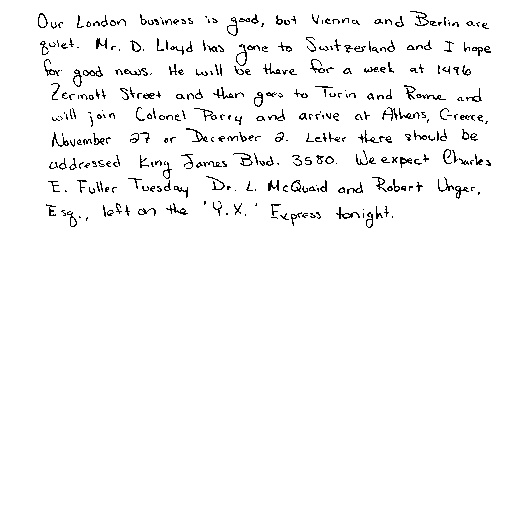 Our London business is good, but Vienna and Berlin are
quiet. Mr. D. Lloyd has gone to Switzerland and I hope
for good news. He will be there for a week at 1496
Zermott Street and then goes to Turin and Rome and
will join Colonel Parry and arrive at Athens, Greece,
November 27 or December 2. Letter there should be
addressed King James Blvd. 3580. We expect Charles
E. Fuller Tuesday Dr. L. McQuaid and Robert Unger,
Esq., left on the 'Y.X.' Express tonight.